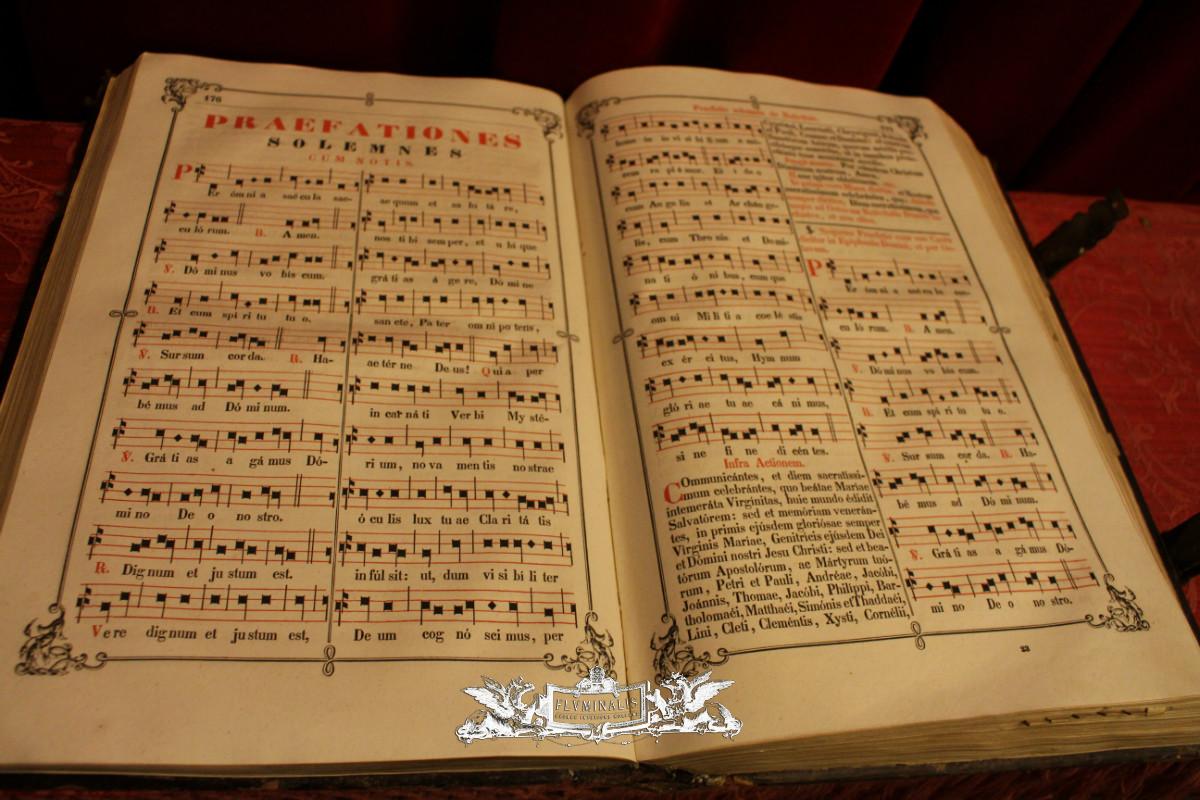 176
PRAEFATIONES
SOLEMNES
CUM NOTIS.
PEr óm ni a saé cu la sae-
cu ló rum. R. A men.
V. Dó mi nus vo bis cum.
R. Et cum spi ri tu tu o.
V. Sur sum cor da. R. Ha-
bé mus ad Dó mi num.
V. Grá ti as a gá mus Dó-
mi no De o no stro.
R. Dig num et ju stum est.
Vere dignum et justum est,
ae quum et sa lu tá re,
nos ti bi sem per, et u bi que
grá ti as á ge re, Dó mi ne
san cte, Pa ter om ni po tens,
ae tér ne De us! Qui a per
in car ná ti Ver bi My sté-
ri um, no va men tis no strae
ó cu lis lux tu ae Cla ri tá tis
in fúl sit: ut, dum vi si bi li ter
De um cog nó sci mus, per
cum An ge lis et Ar chán ge-
lis, cum Thro nis et Do mi-
na ti ó ni bus, cum que
om ni Mi li ti a coe lé stis
ex ér ci tus, Hym num
gló ri ae tu ae cá ni mus,
si ne fi ne di cén tes.
Infra Actionem.
COmmunicántes, et diem sacratissi-
mum celebrántes, quo beátae Mariae
intemeráta Virginitas, huic mundo édidit
Salvatórem: sed et memóriam venerán-
tes, in primis ejúsdem gloriósae semper
Virginis Mariae, Genitricis ejúsdem Dei
et Dómini nostri Jesu Christi: sed et bea-
tórum Apostolórum, ac Mártyrum tuó-
rum, Petri et Pauli, Andréae, Jacóbi,
Joánnis, Thomae, Jacóbi, Philippi, Bar-
tholomaéi, Matthaéi, Simónis et Thaddaéi,
Lini, Cleti, Cleméntis, Xysti, Cornélii,
PEr óm ni a saé cu la sae-
cu ló rum. R. A men.
V. Dó mi nus vo bis cum.
R. Et cum spi ri tu tu o.
V. Sur sum cor da. R. Ha-
bé mus ad Dó mi num.
V. Grá ti as a gá mus Dó-
mi no De o no stro.
23
FLVMINALIS